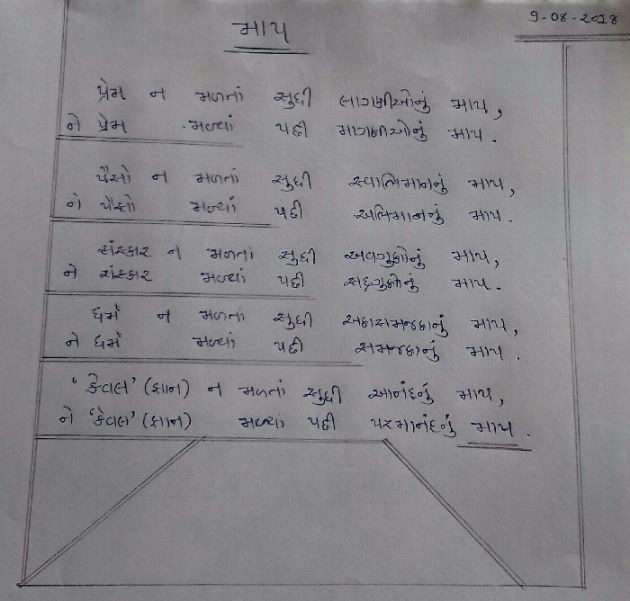 9-08-2018
માપ
પ્રેમ ન મળતાં સુધી લાગણીઓનું માપ,
ને પ્રેમ મળ્યાં પછી માગણીઓનું માપ.
પૈસો ન મળતાં સુધી સ્વાભિમાનનું માપ,
ને પૈસો મળ્યાં પછી અભિમાનનું માપ.
સંસ્કાર ન મળતાં સુધી અવગુણોનું માપ,
ને સંસ્કાર મળ્યાં પછી સદ્દગુણોનું માપ.
ધર્મ ન મળતાં સુધી અણસમજણનું માપ,
ને ધર્મ મળ્યાં પછી સમજણનું માપ.
'કેવલ' (જ્ઞાન) ન મળતાં સુધી આનંદનું માપ,
ને 'કેવલ' (જ્ઞાન) મળ્યાં પછી પરમાનંદનું માપ.